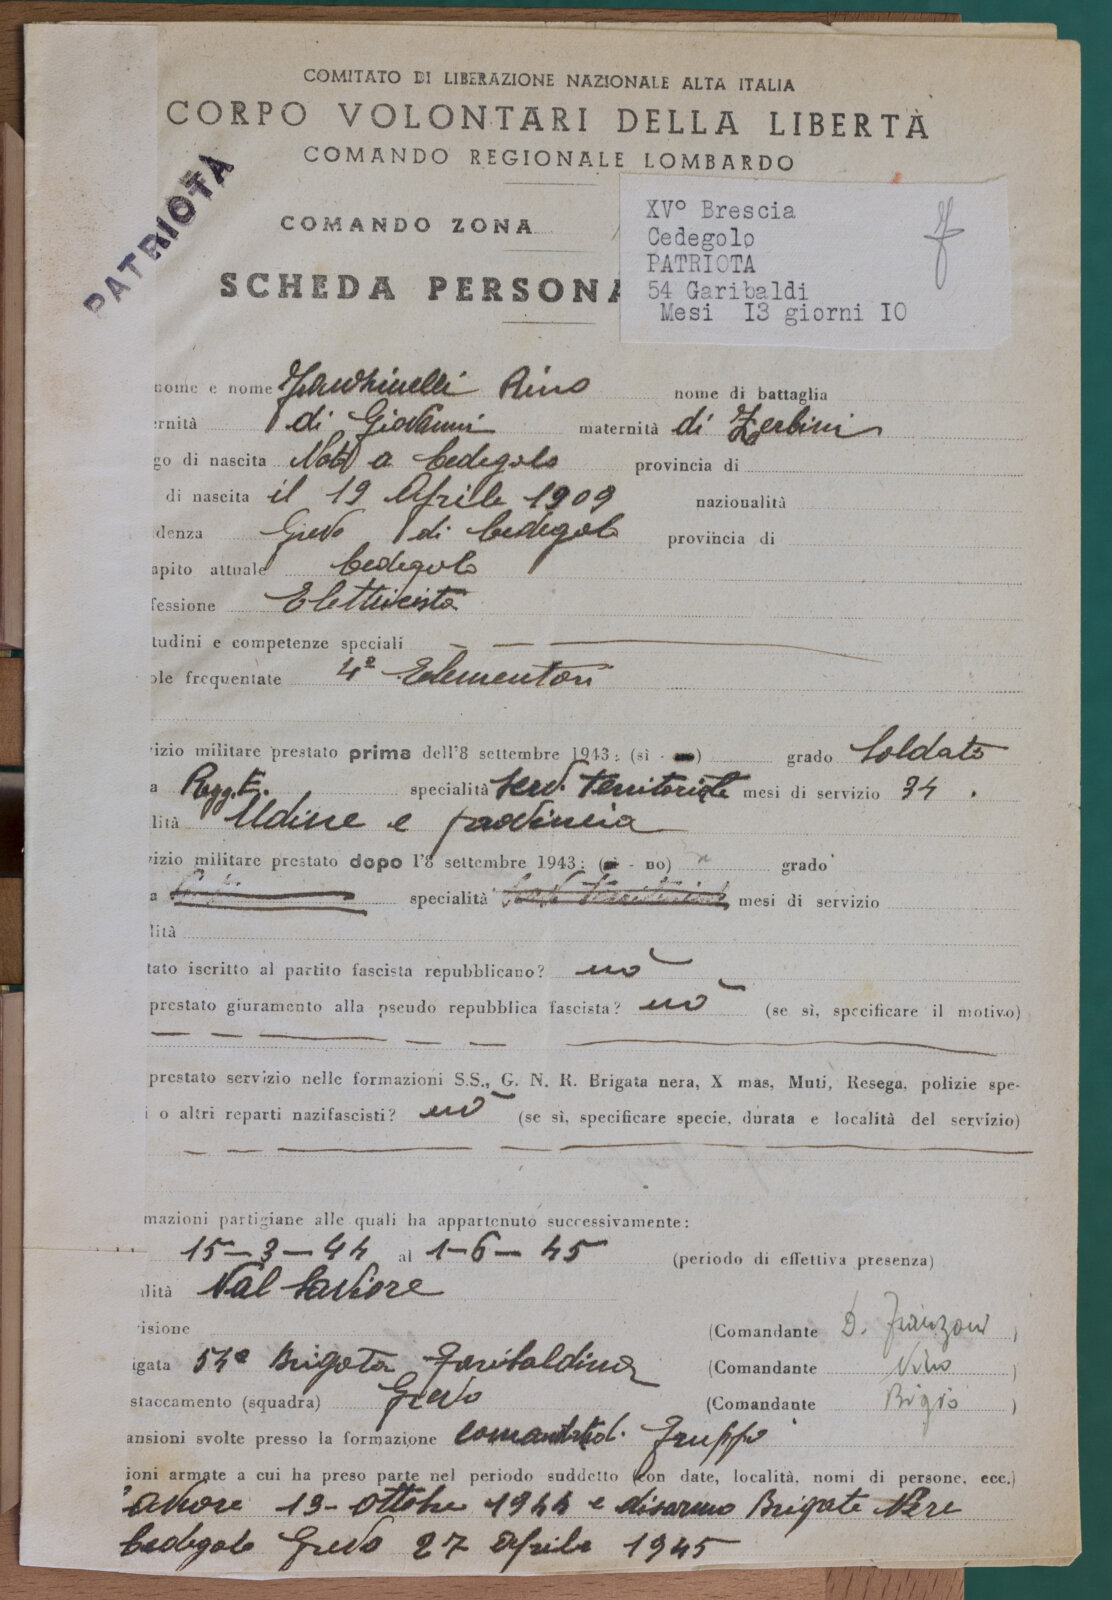 COMITATO DI LIBERAZIONE NAZIONALE ALTA ITALIA
CORPO VOLONTARI DELLA LIBERTÀ
COMANDO REGIONALE LOMBARDO
PATRIOTA
COMANDO ZONA
XV° Brescia
Cedegolo
PATRIOTA
54 Garibaldi
Mesi I3 giorni IO
SCHEDA PERSONA
nome e nome Rino nome di battaglia
rnità di Giovanni maternità di Zerbini
go di nascita Nato a Cedegolo provincia di
di nascita il 19 Aprile 1909 nazionalità
denza Grevo di Cedegolo provincia di
apito attuale Cedegolo
fessione Elettricista
tudini e competenze speciali
ole frequentate 4ª Elementari
izio militare prestato prima dell'8 settembre 1943: (sì - no) grado Soldato
a Regg.F. specialità Serv. Territoriale mesi di servizio 34.
lità Udine e provincia
izio militare prestato dopo l'8 settembre 1943: (sì - no) grado
a specialità mesi di servizio
lità
tato iscritto al partito fascista repubblicano? no
prestato giuramento alla pseudo repubblica fascista? no (se sì, specificare il motivo)
prestato servizio nelle formazioni S.S., G. N. R. Brigata nera, X mas, Muti, Resega, polizie spe-
i o altri reparti nazifascisti? no (se sì, specificare specie, durata e località del servizio)
mazioni partigiane alle quali ha appartenuto successivamente:
15-3-44 al 1-6-45 (periodo di effettiva presenza)
alità Val Saviore
isione (Comandante D. Franzoni)
igata 54ª Brigata Garibaldina (Comandante Nino)
staccamento (squadra) Grevo (Comandante Bigio)
ansioni svolte presso la formazione comandante di Gruppo
ioni armate a cui ha preso parte nel periodo suddetto (con date, località, nomi di persone, ecc.)
aviore 19- ottobre 1944 e disarmo Brigate Nere
Cedegolo Grevo 27 Aprile 1945